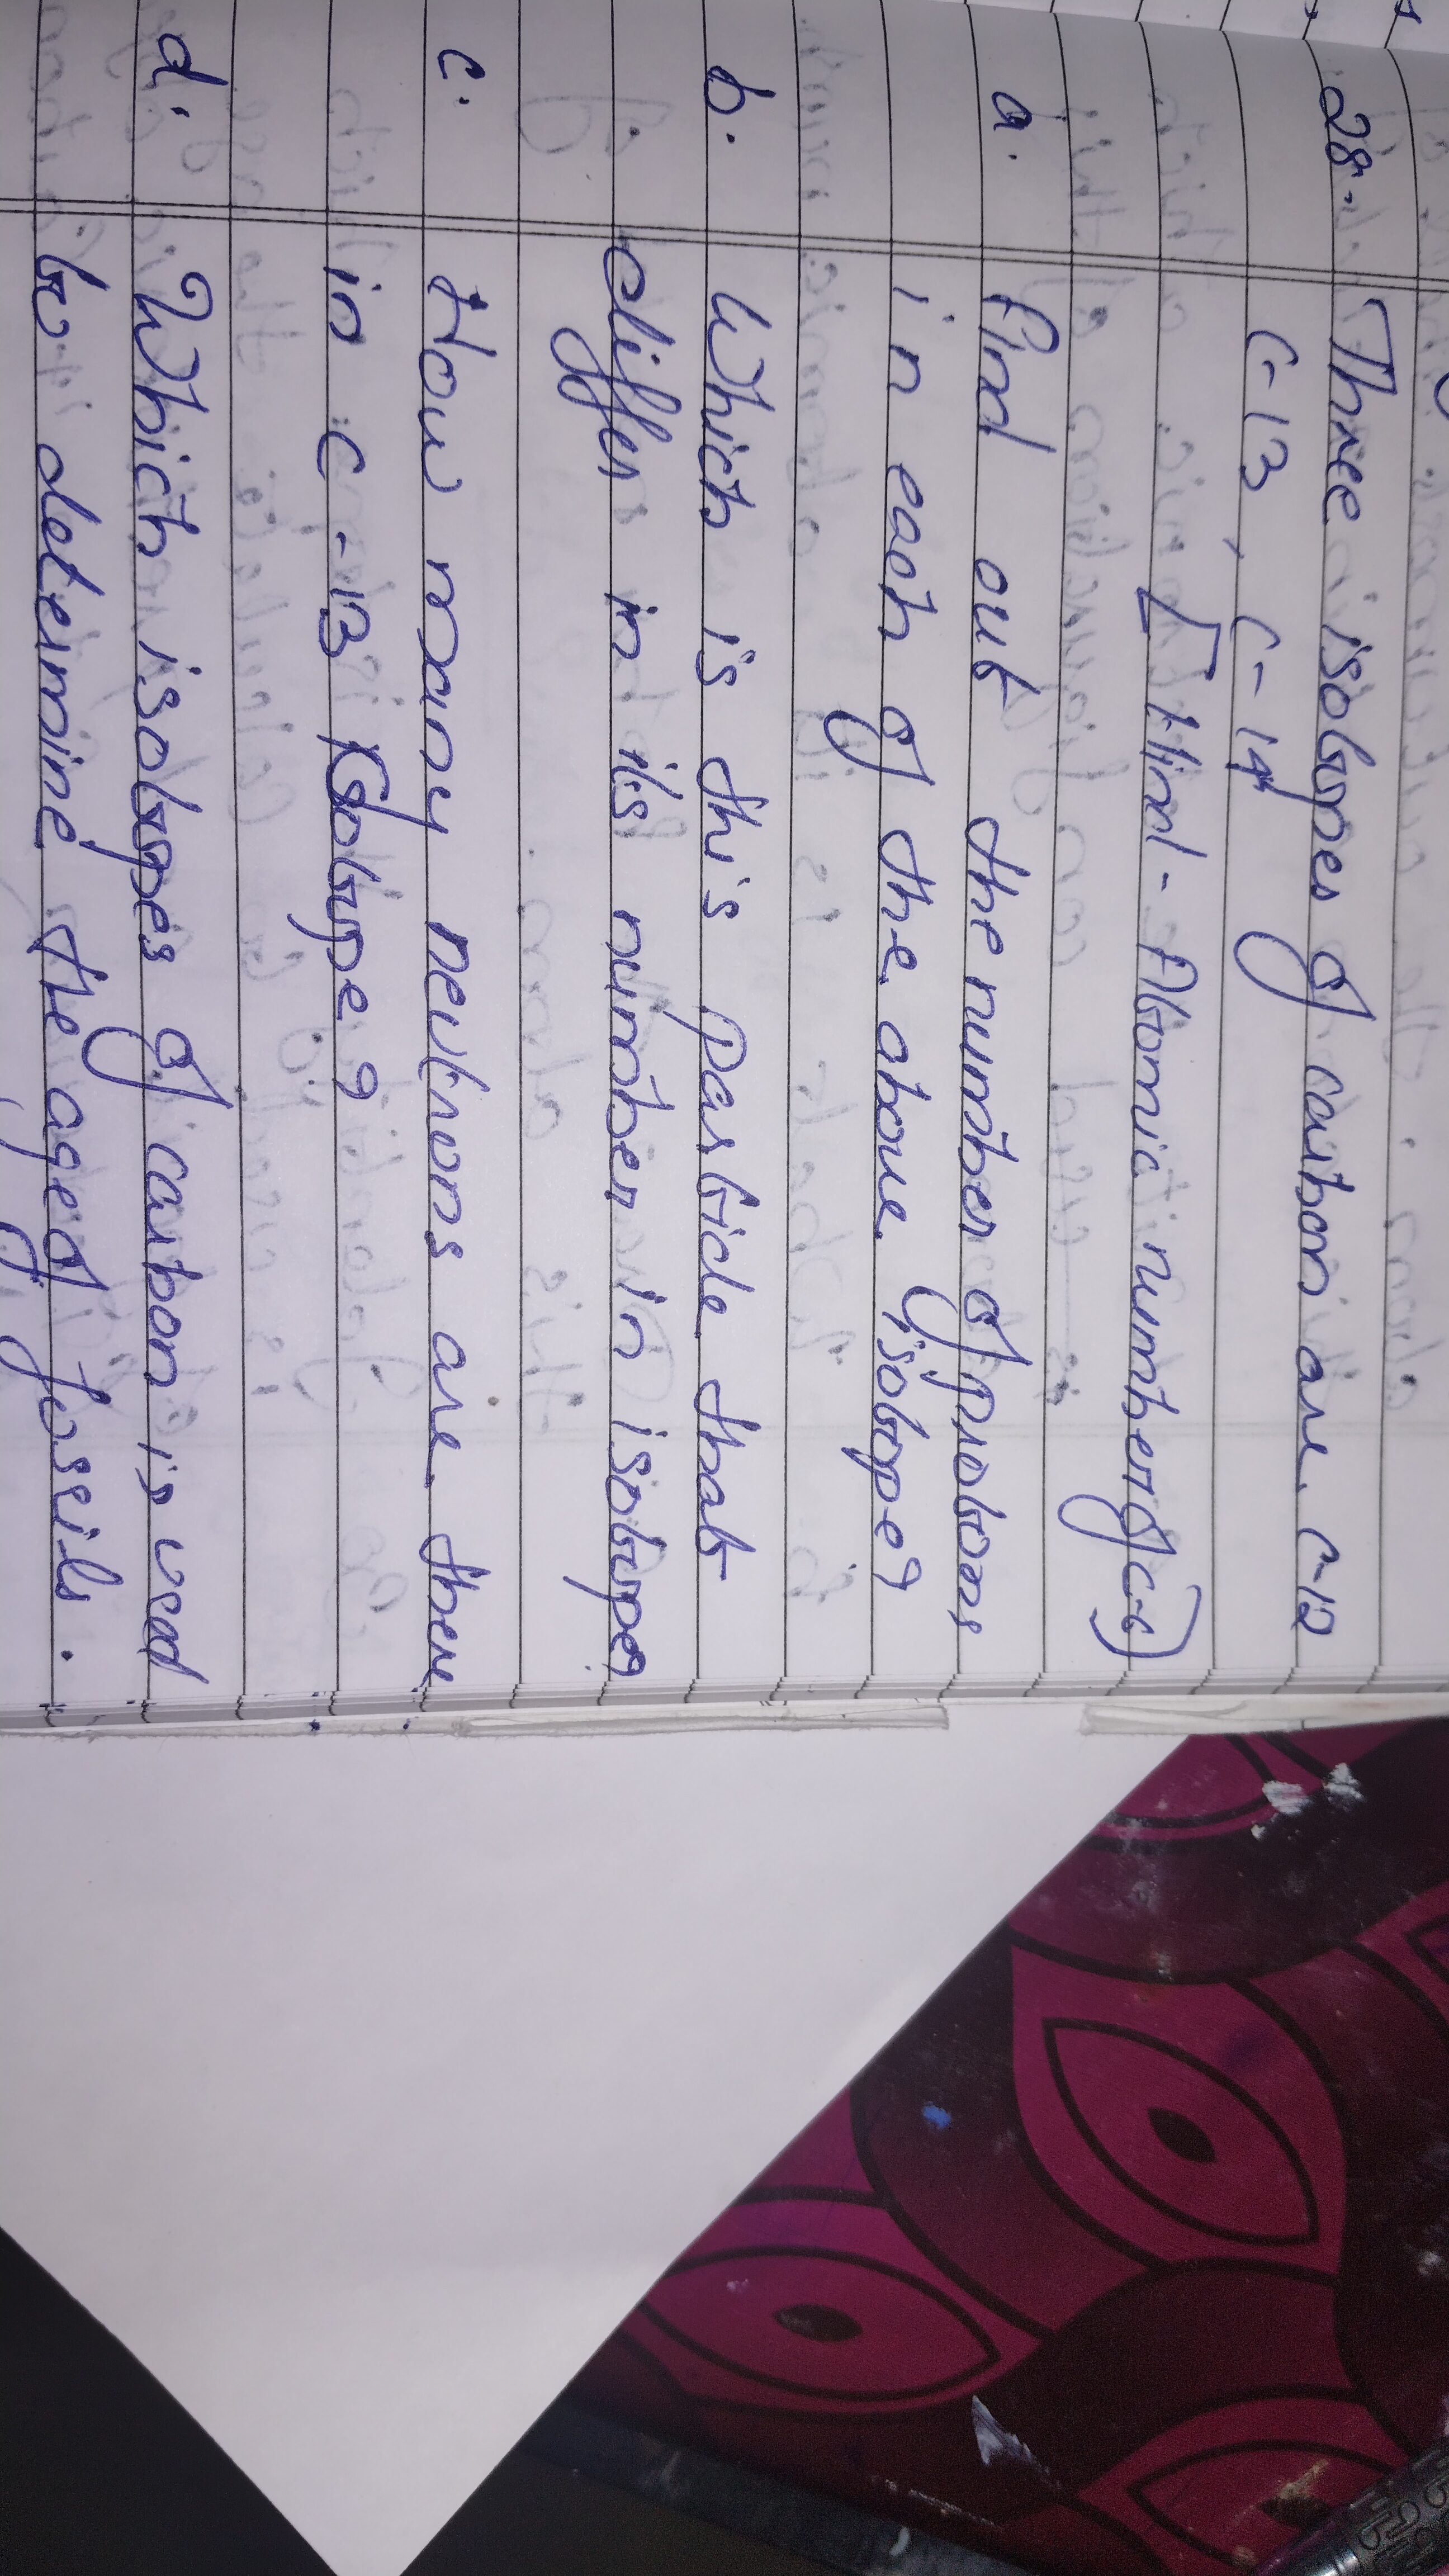 28. Three isotopes of carbon are C-12
C-13, C-14
[Hint - Atomic number of C-6)
a. find out the number of protons
in each of the above isotope?
b. Which is this particle that
differ in its number in isotope?
c. How many neutrons are there
in C-13 isotope?
d. Which isotopes of carbon is used
to determine the age of fossils.